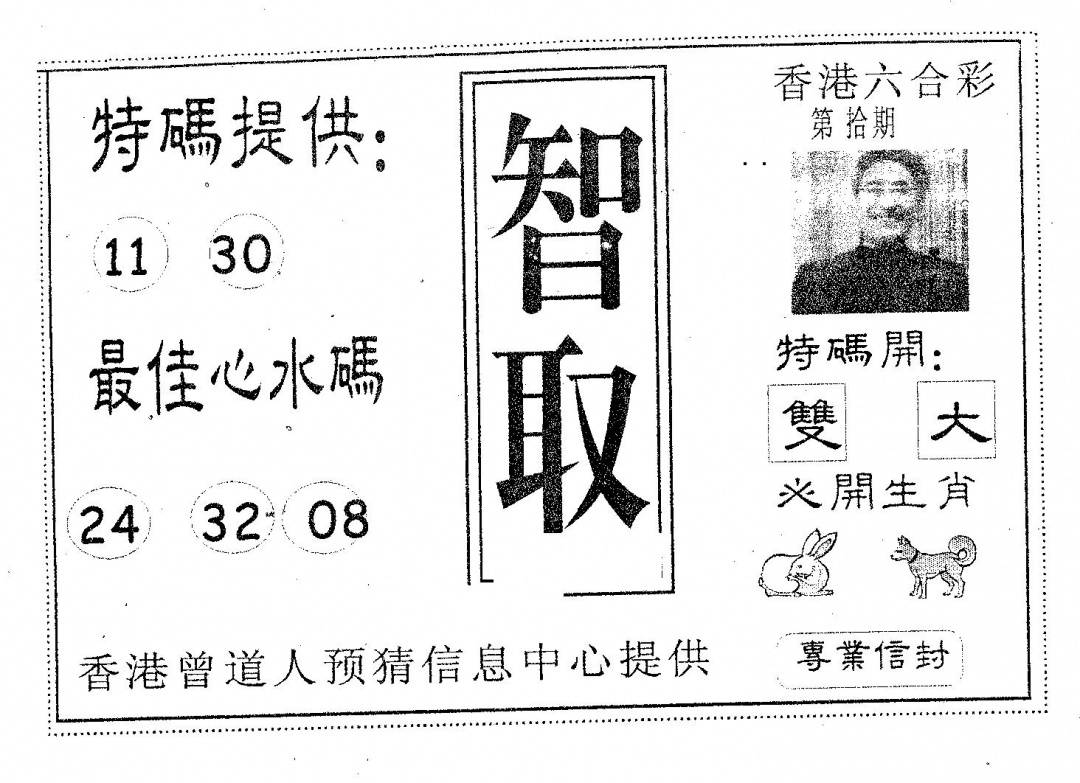 特碼提供：
11 30
最佳心水碼
24 32 08
智取
香港六合彩
第拾期
特碼開：
雙 大
必開生肖
專業信封
香港曾道人预猜信息中心提供